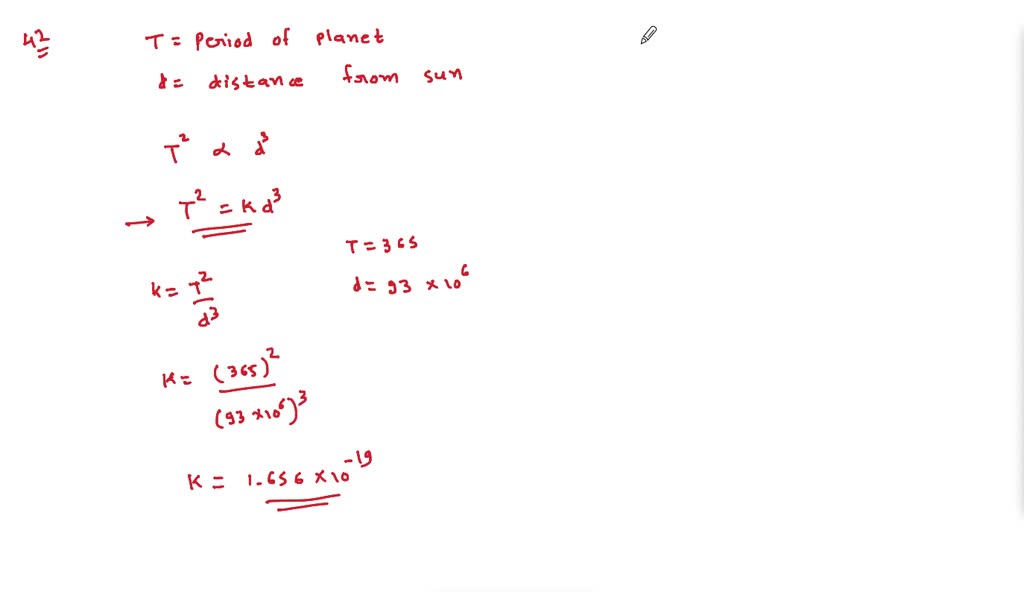 42
T = Period of planet
d = distance from sun
T² ∝ d³
→ T² = k d³
T = 365
d = 93 × 10⁶
k = T²/d³
K = (365)²/(93 × 10⁶)³
K = 1.656 × 10⁻¹⁹